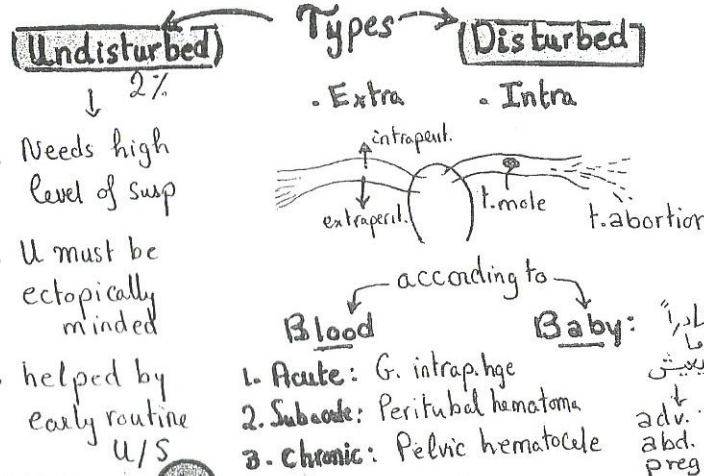 Types
(Undisturbed)
2%
Needs high
level of susp
U must be
ectopically
minded
helped by
early routine
U/S
(Disturbed)
. Extra
. Intra
intraperit.
extraperit.
t.mole
t.abortion
according to
Blood
1. Acute: G. intrap.hge
2. Subacute: Peritubal hematoma
3. Chronic: Pelvic hematocele
Baby:
نادراً
ما
يعيش
adv.
abd.
preg